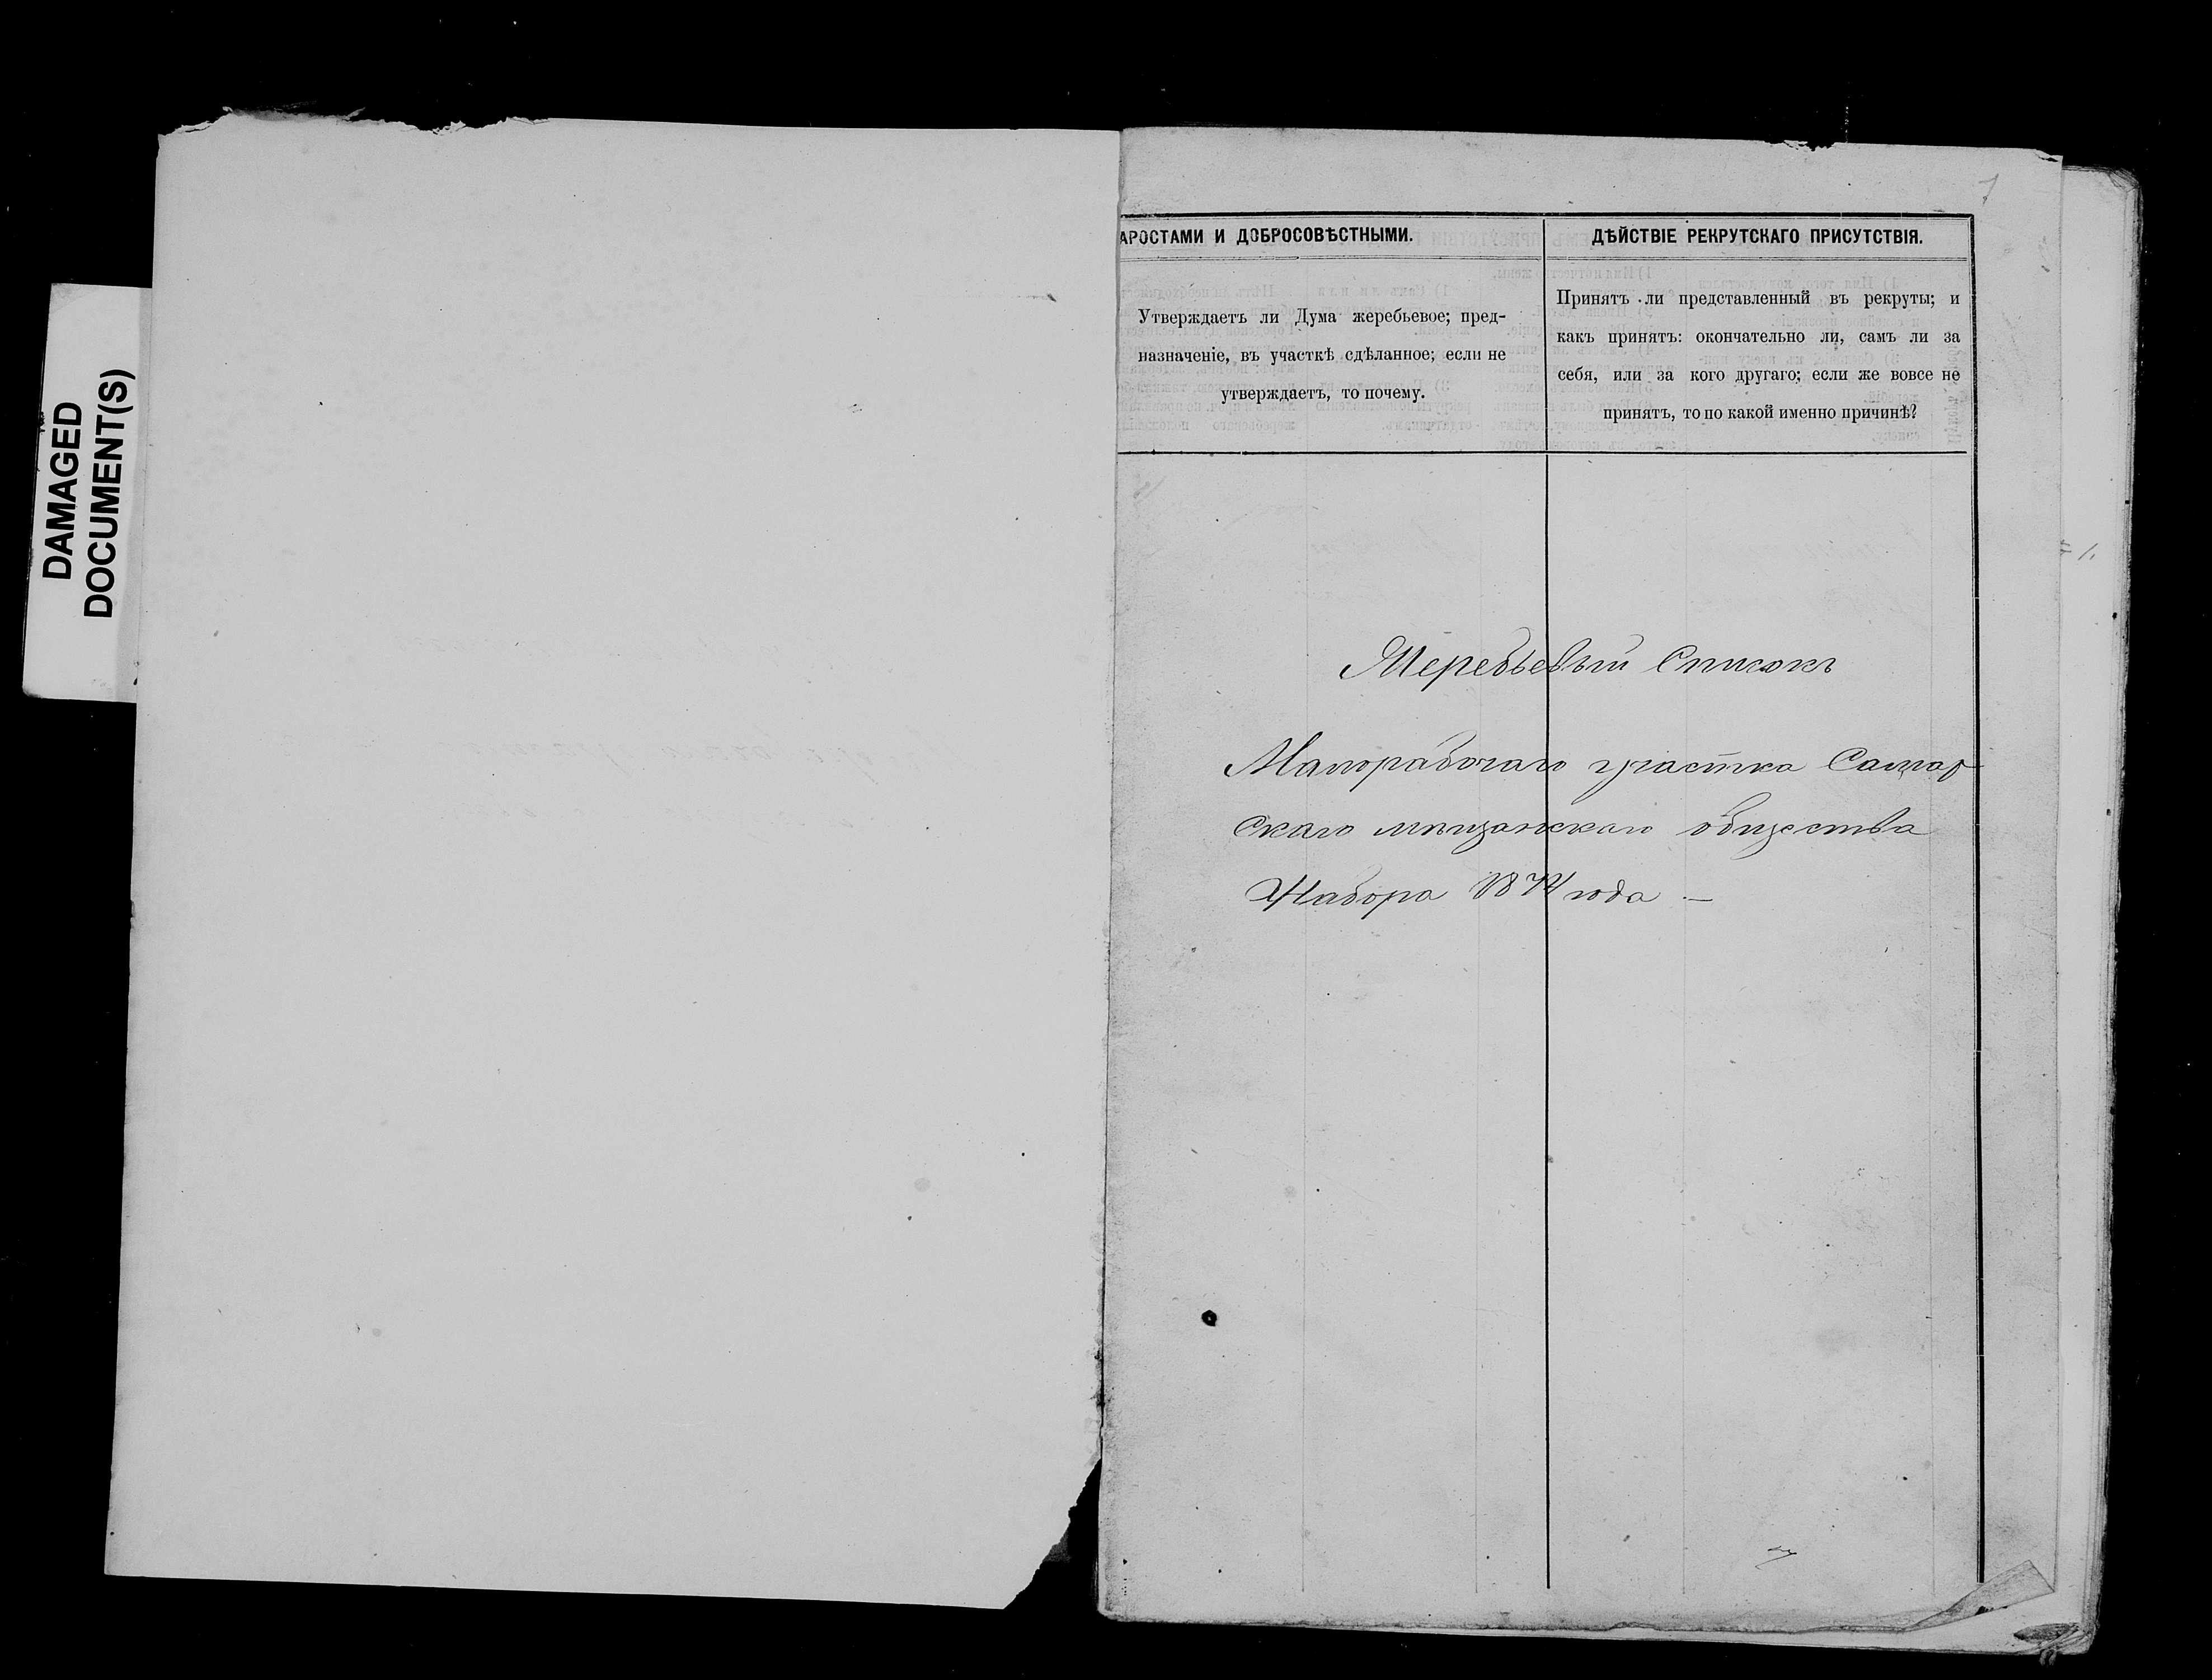 DAMAGED
DOCUMENT(S)
АРОСТАМИ И ДОБРОСОВѢСТНЫМИ.
Утверждаетъ ли Дума жеребьевое; пред-
назначеніе, въ участкѣ сдѣланное; если не
утверждаетъ, то почему.
ДѢЙСТВІЕ РЕКРУТСКАГО ПРИСУТСТВІЯ.
Принятъ ли представленный въ рекруты; и
какъ принятъ: окончательно ли, самъ ли за
себя, или за кого другаго; если же вовсе не
принятъ, то по какой именно причинѣ?
Жеребьевый Списокъ
Малорабочаго участка Самар
скаго мѣщанскаго общества
Набора 1874 года —